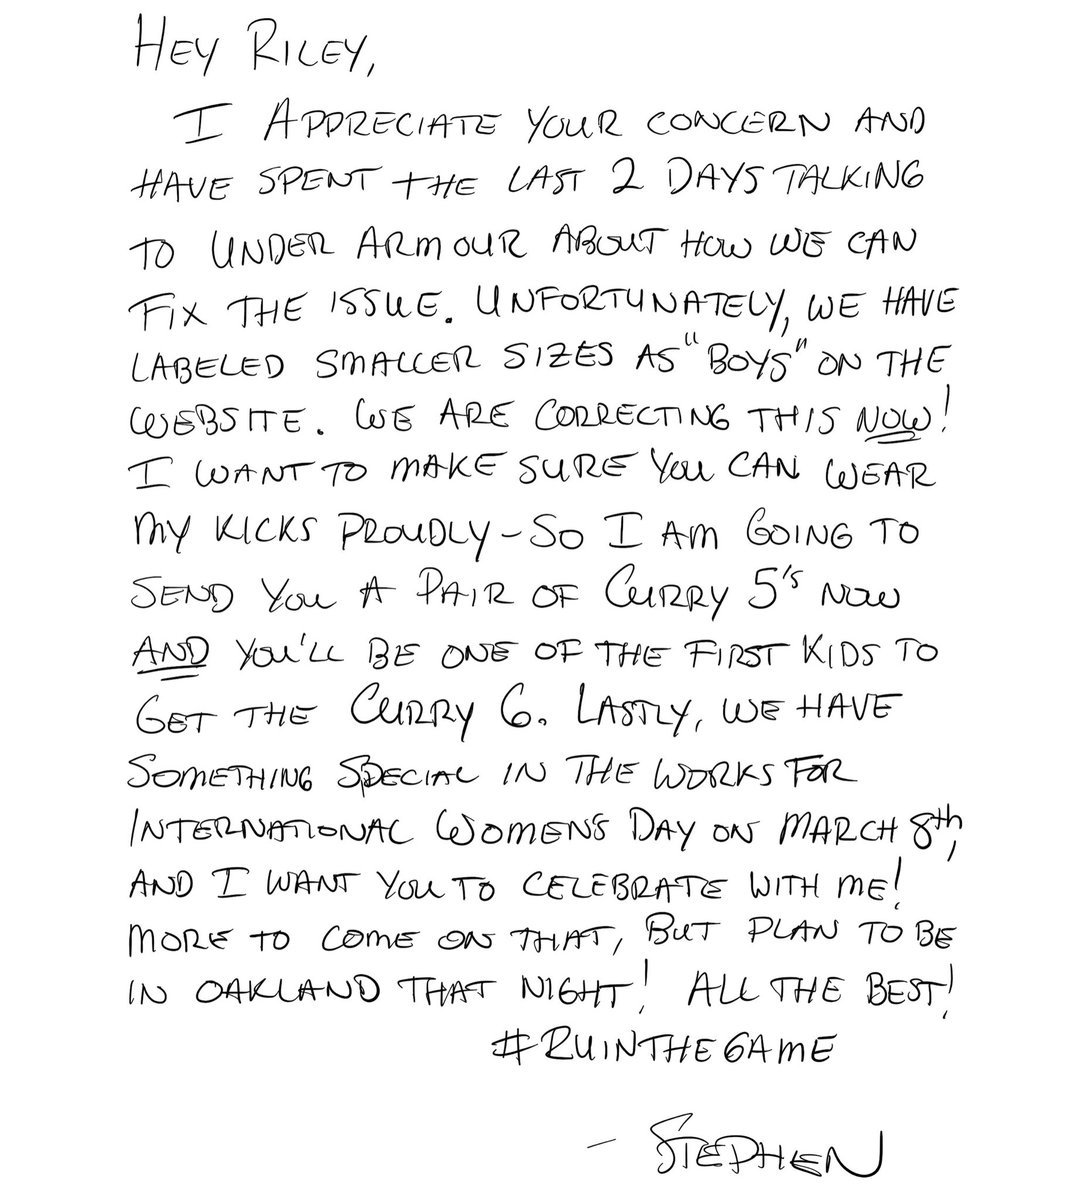 HEY RILEY,
I APPRECIATE YOUR CONCERN AND
HAVE SPENT THE LAST 2 DAYS TALKING
TO UNDER ARMOUR ABOUT HOW WE CAN
FIX THE ISSUE. UNFORTUNATELY, WE HAVE
LABELED SMALLER SIZES AS "BOYS" ON THE
WEBSITE. WE ARE CORRECTING THIS NOW!
I WANT TO MAKE SURE YOU CAN WEAR
MY KICKS PROUDLY - SO I AM GOING TO
SEND YOU A PAIR OF CURRY 5's NOW
AND YOU'LL BE ONE OF THE FIRST KIDS TO
GET THE CURRY 6. LASTLY, WE HAVE
SOMETHING SPECIAL IN THE WORKS FOR
INTERNATIONAL WOMENS DAY ON MARCH 8th,
AND I WANT YOU TO CELEBRATE WITH ME!
MORE TO COME ON THAT, BUT PLAN TO BE
IN OAKLAND THAT NIGHT! ALL THE BEST!
#RUINTHEGAME
- STEPHEN